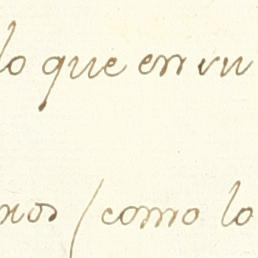 lo que en su
nos (como lo